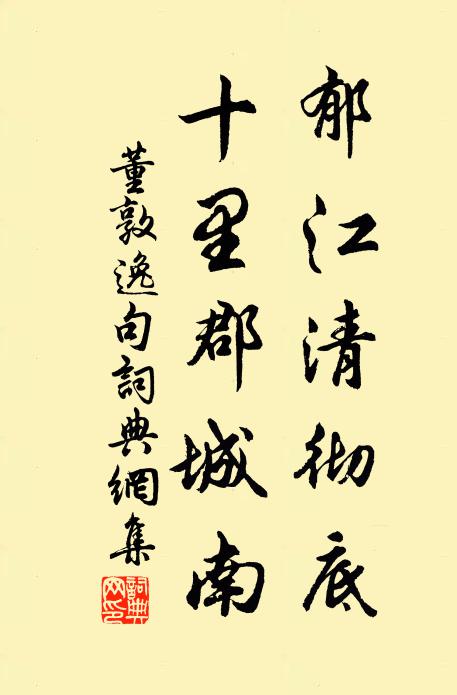 郁江清彻底
十里郡城南
董敦逸句詞典網集
詞典網印